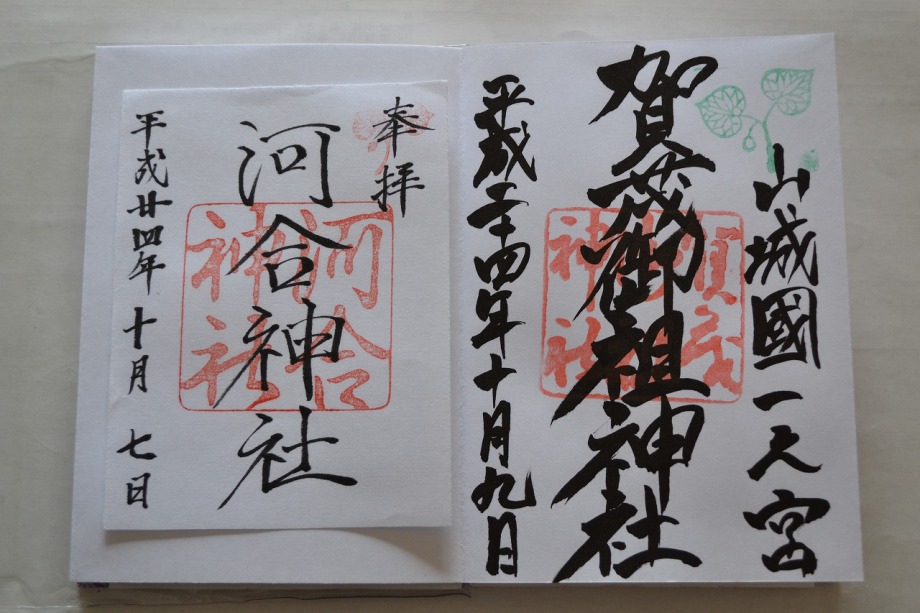 山城國一之宮
賀茂御祖神社
平成二十四年十月九日
奉拝
河合神社
河合
神社
平成廿四年十月七日